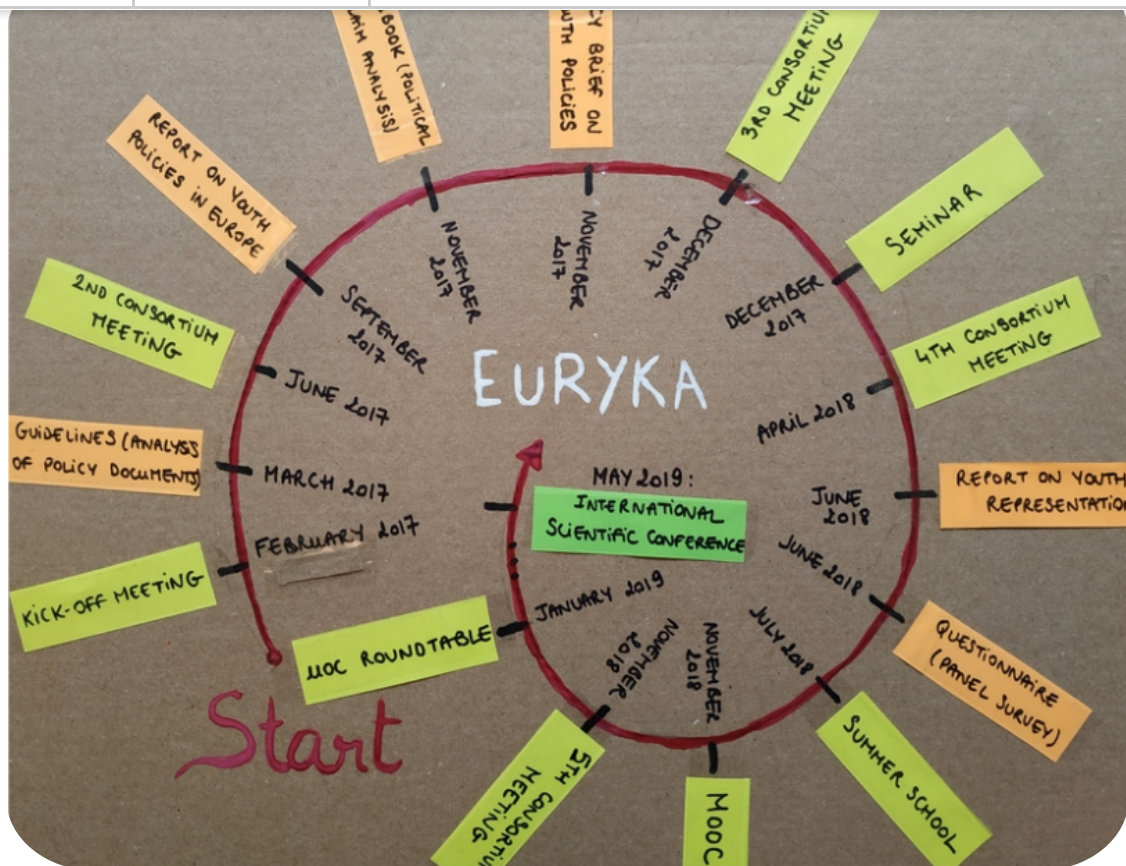 Start
KICK-OFF MEETING
FEBRUARY 2017
GUIDELINES (ANALYSIS
OF POLICY DOCUMENTS)
MARCH 2017
2ND CONSORTIUM
MEETING
JUNE 2017
REPORT ON YOUTH
POLICIES IN EUROPE
SEPTEMBER
2017
BOOK (POLITICAL
ANALYSIS)
NOVEMBER
2017
BRIEF ON
POLICIES
NOVEMBER
2017
3RD CONSORTIUM
MEETING
DECEMBER
2017
SEMINAR
DECEMBER
2017
4TH CONSORTIUM
MEETING
APRIL 2018
REPORT ON YOUTH
REPRESENTATIO
JUNE
2018
QUESTIONNAIRE
(PANEL SURVEY)
JUNE 2018
SUMMER SCHOOL
JULY 2018
MOOC
NOVEMBER
2018
5TH CONSORTIU
MEETING
NOVEMBER
2018
UOC ROUNDTABLE
JANUARY 2019
MAY 2019:
INTERNATIONAL
SCIENTIFIC CONFERENCE
EURYKA